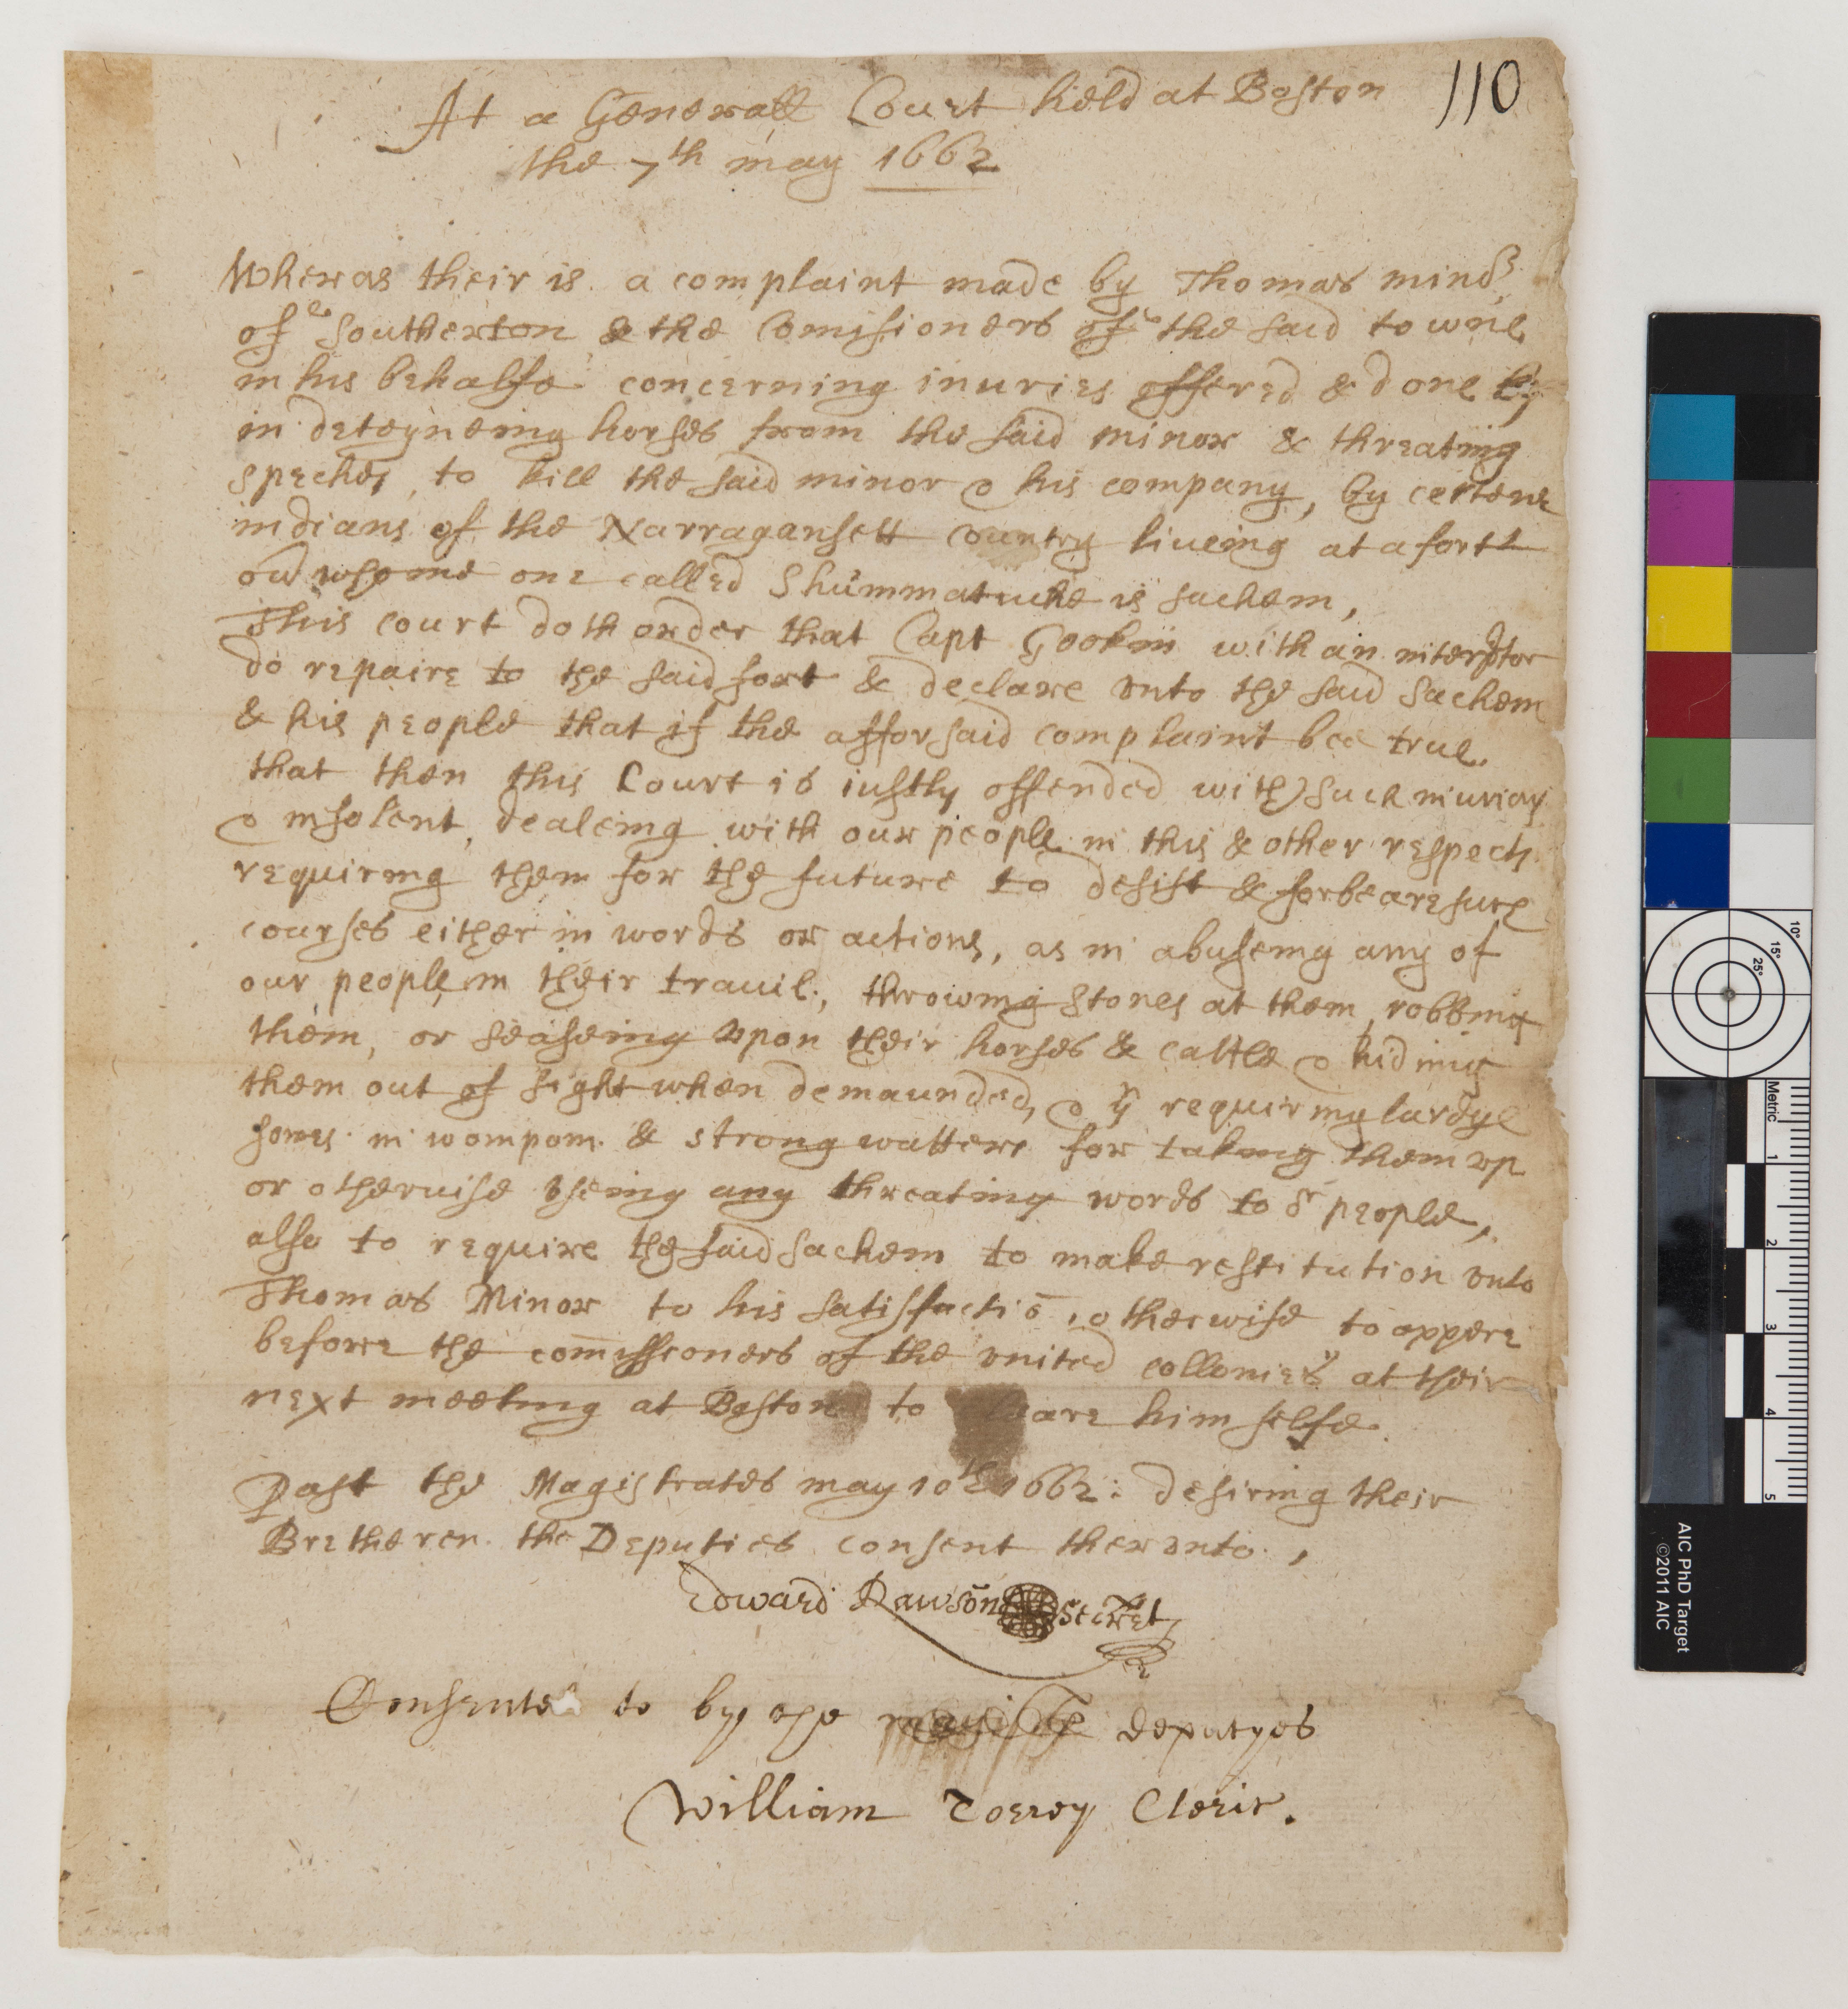 110
At a Generall Court held at Boston
the 7th may 1662
Wheras their is a complaint made by Thomas minor
of Southerton & the Comisioners of the said towne
in his behalfe concerning iniuries offered & done by
in deteyneing horses from the said minor & threating
speches, to kill the said minor & his company, by certene
indians of the Narragansett Country liueing at a fort
ou whome one called Shummatuche is sachem,
This court doth order that Capt Gookin with an interptor
do repaire to the said fort & declare vnto the said Sachem
& his people that if the afforsaid complaint bee true.
that then this Court is iustly offended with such iniurious
& insolent dealeing with our people in this & other respects
requiring them for the future to desist & forbeare such
courses either in words or actions, as in abuseing any of
our people in their trauil., throwing stones at them, robbing
them, or seaseing vpon their horses & cattle & hiding
them out of sight when demaunded, & yn requiring lardge
somes in wompom & strong watters for taking them vp
or otherwise vseing any threating words to or people,
also to require the said sachem to make restitution vnto
Thomas Minor to his satisfactiō, otherwise to appere
before the com̄issioners of the vnited collonies at their
next meeting at Boston to cleare himselfe.
Past the Magistrates may 10th 1662: desiring their
Bretheren the Deputies consent thervnto.,
Edward Rawson Secret
Consented to by the deputyes
William Torrey Cleric.
AIC PhD Target
©2011 AIC
Metric
1
2
3
4
5
10°
15°
25°